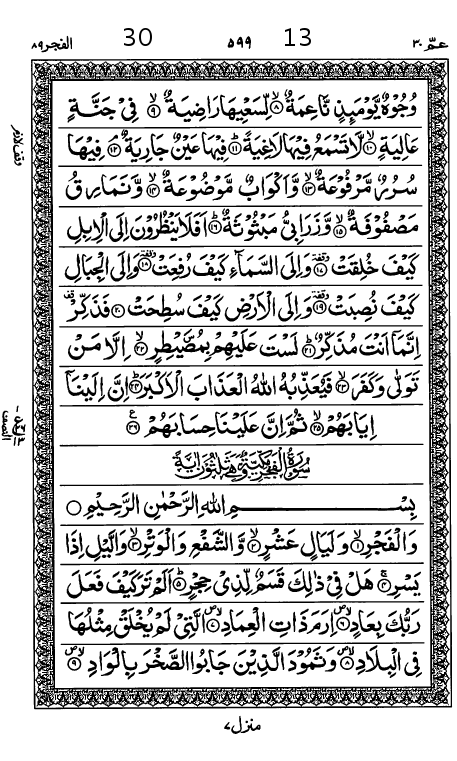 عمّ ٣٠
13
٥٩٩
30
الفجر ٨٩
وُجُوْهٌ يَّوْمَىِٕذٍ نَّاعِمَةٌ ۙ﴿۸﴾ لِّسَعْيِهَا رَاضِيَةٌ ۙ﴿۹﴾ فِيْ جَنَّةٍ
عَالِيَةٍ ۙ﴿۱۰﴾ لَّا تَسْمَعُ فِيْهَا لَاغِيَةً ؕ﴿۱۱﴾ فِيْهَا عَيْنٌ جَارِيَةٌ ۘ﴿۱۲﴾ فِيْهَا
سُرُرٌ مَّرْفُوْعَةٌ ۙ﴿۱۳﴾ وَّاَكْوَابٌ مَّوْضُوْعَةٌ ۙ﴿۱۴﴾ وَّنَمَارِقُ
مَصْفُوْفَةٌ ۙ﴿۱۵﴾ وَّزَرَابِيُّ مَبْثُوْثَةٌ ؕ﴿۱۶﴾ اَفَلَا يَنْظُرُوْنَ اِلَى الْاِبِلِ
كَيْفَ خُلِقَتْ ۥ﴿۱۷﴾ وَاِلَى السَّمَآءِ كَيْفَ رُفِعَتْ ۥ﴿۱۸﴾ وَاِلَى الْجِبَالِ
كَيْفَ نُصِبَتْ ۥ﴿۱۹﴾ وَاِلَى الْاَرْضِ كَيْفَ سُطِحَتْ ﴿۲۰﴾ فَذَكِّرْ
اِنَّمَاۤ اَنْتَ مُذَكِّرٌ ؕ﴿۲۱﴾ لَسْتَ عَلَيْهِمْ بِمُصَۜيْطِرٍ ۙ﴿۲۲﴾ اِلَّا مَنْ
تَوَلّٰى وَكَفَرَ ۙ﴿۲۳﴾ فَيُعَذِّبُهُ اللّٰهُ الْعَذَابَ الْاَكْبَرَ ؕ﴿۲۴﴾ اِنَّ اِلَيْنَاۤ
اِيَابَهُمْ ۙ﴿۲۵﴾ ثُمَّ اِنَّ عَلَيْنَا حِسَابَهُمْ ﴿۲۶﴾
سُوْرَةُ الْفَجْرِ مَكِّيَّةٌ وَّهِيَ ثَلٰثُوْنَ اٰيَةً
بِسْمِ اللّٰهِ الرَّحْمٰنِ الرَّحِيْمِ
وَالْفَجْرِ ۙ﴿۱﴾ وَلَيَالٍ عَشْرٍ ۙ﴿۲﴾ وَّالشَّفْعِ وَالْوَتْرِ ۙ﴿۳﴾ وَالَّيْلِ اِذَا
يَسْرِ ۚ﴿۴﴾ هَلْ فِيْ ذٰلِكَ قَسَمٌ لِّذِيْ حِجْرٍ ؕ﴿۵﴾ اَلَمْ تَرَ كَيْفَ فَعَلَ
رَبُّكَ بِعَادٍ ۪ۙ﴿۶﴾ اِرَمَ ذَاتِ الْعِمَادِ ۪ۙ﴿۷﴾ الَّتِيْ لَمْ يُخْلَقْ مِثْلُهَا
فِي الْبِلَادِ ۪ۙ﴿۸﴾ وَثَمُوْدَ الَّذِيْنَ جَابُوا الصَّخْرَ بِالْوَادِ ۪ۙ﴿۹﴾
منزل ٧